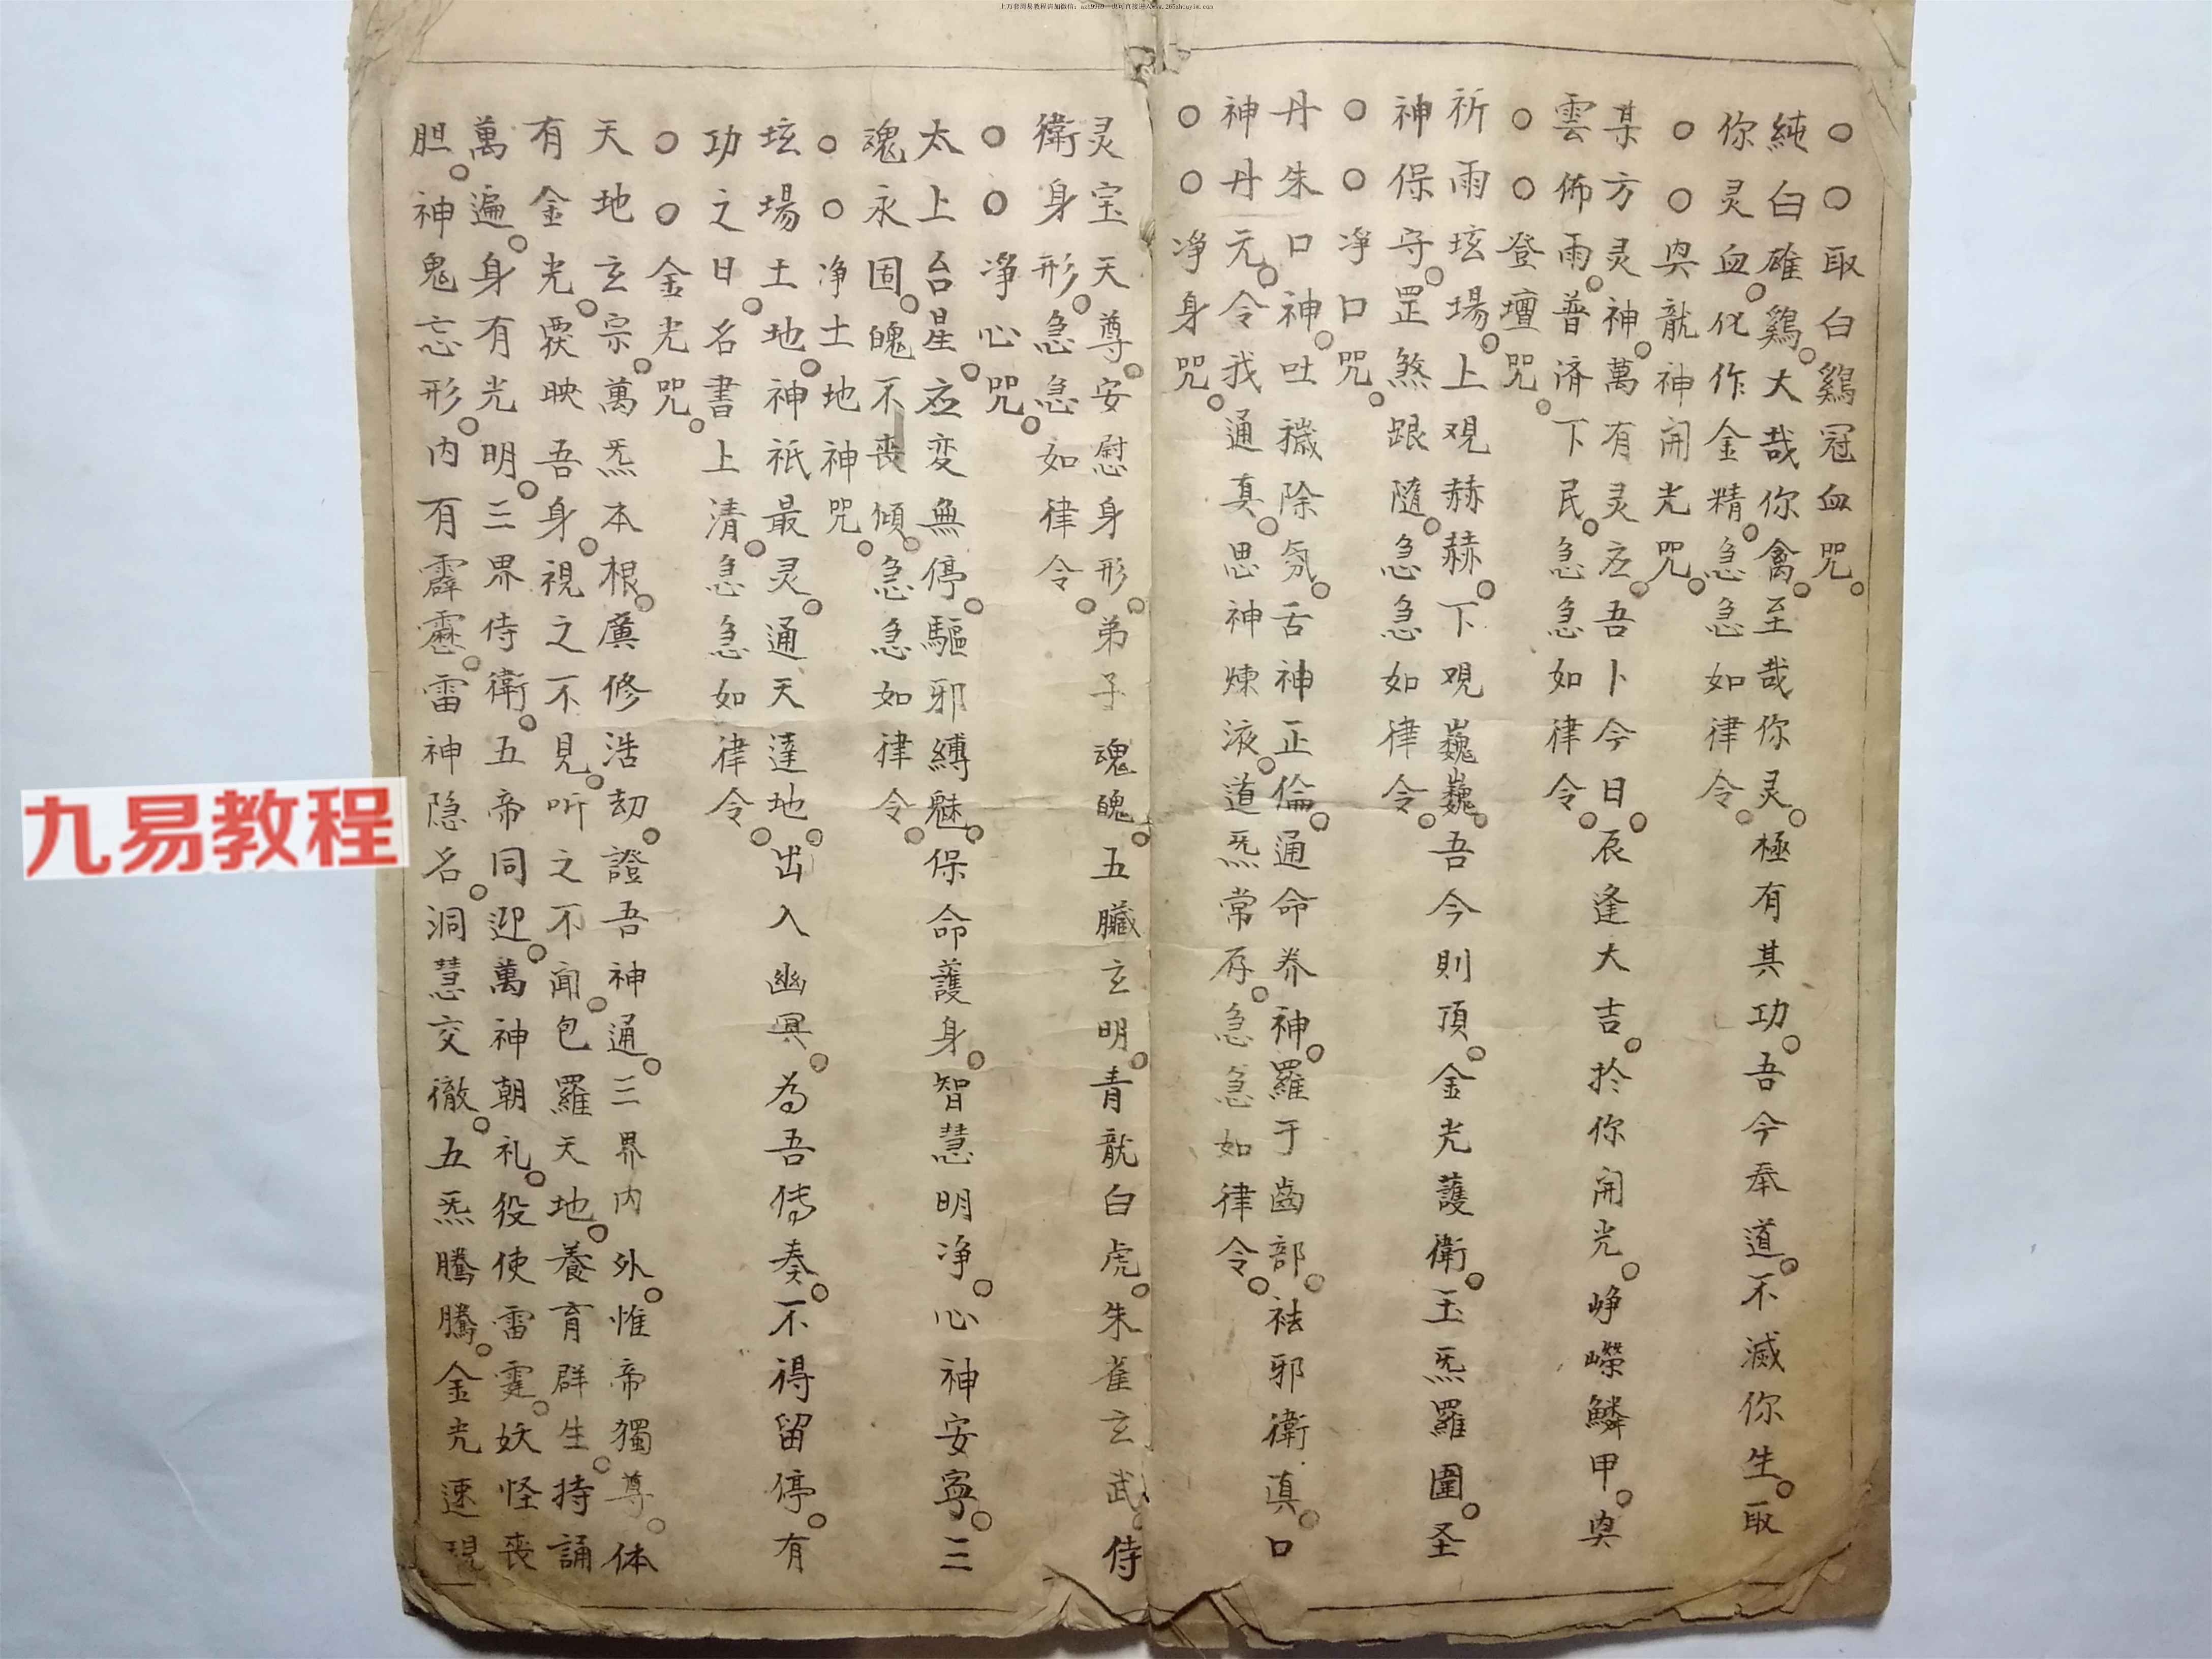 ○○取白鷄冠血咒。
純白雄鷄。大哉你禽。至哉你灵。極有其功。吾今奉道。不滅你生。取
你灵血。化作金精。急急如律令。
○○與龍神開光咒。
某方灵神。萬有灵应。吾卜今日。辰逢大吉。於你開光。崢嶸鱗甲。與
雲佈雨。普済下民。急急如律令。
○○登壇咒。
祈雨坛場。上观赫赫。下观巍巍。吾今則頂。金光護衛。玉炁羅圍。圣
神保守。罡煞跟随。急急如律令。
○○净口咒。
丹朱口神。吐穢除氛。舌神正倫。通命养神。羅于齒部。祛邪衛真。口
神丹元。令我通真。思神煉液。道炁常存。急急如律令。
○○净身咒。
灵宝天尊。安慰身形。弟子魂魄。五臟玄明。青龍白虎。朱雀玄武。侍
衛身形。急急如律令。
○○净心咒。
太上台星。应变無停。驅邪縛魅。保命護身。智慧明净。心神安寧。三
魂永固。魄不喪傾。急急如律令。
○○净土地神咒。
坛場土地。神祇最灵。通天達地。出入幽冥。為吾傳奏。不得留停。有
功之日。名書上清。急急如律令。
○○金光咒。
天地玄宗。萬炁本根。廣修浩劫。證吾神通。三界内外。惟帝獨尊。体
有金光。覆映吾身。視之不見。听之不闻。包羅天地。養育群生。持誦
萬遍。身有光明。三界侍衛。五帝同迎。萬神朝礼。役使雷霆。妖怪丧
胆。神鬼忘形。内有霹靂。雷神隐名。洞慧交徹。五炁騰騰。金光速現
九易教程